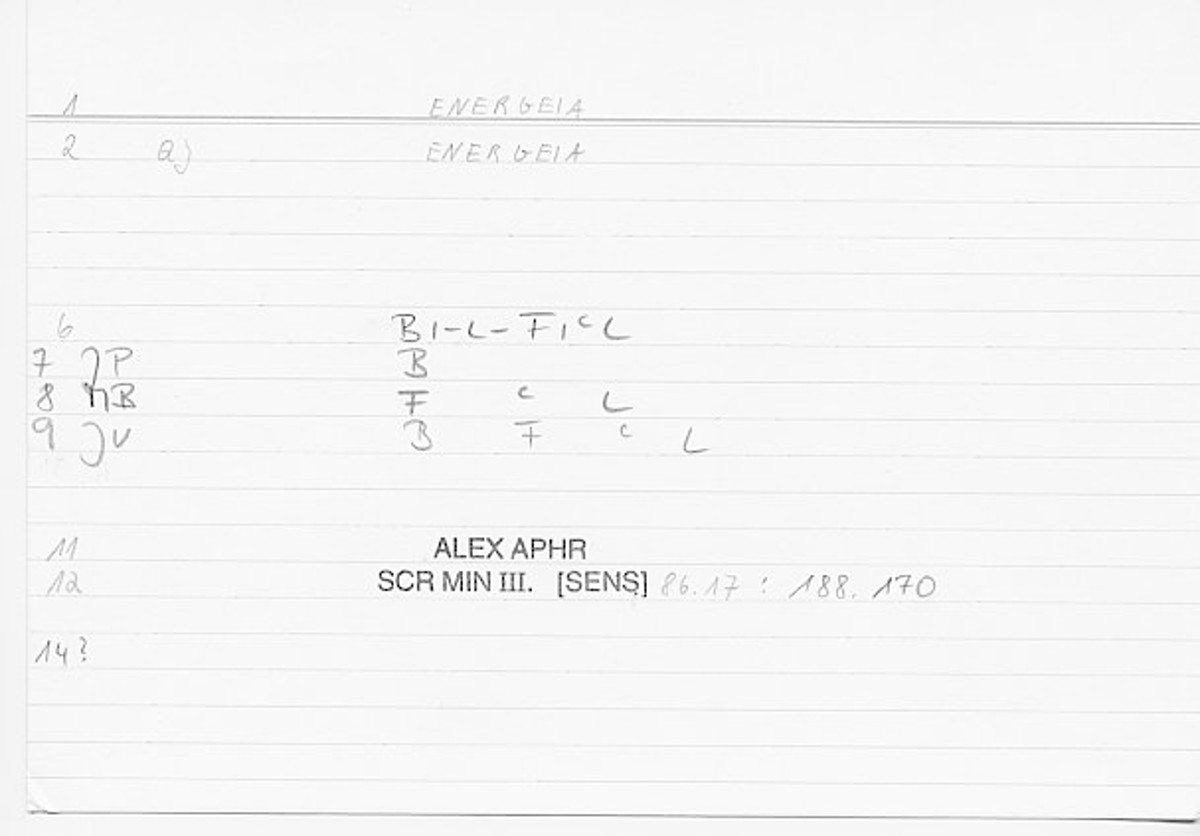 1 ENERGEIA
2 a) ENERGEIA
6 B I-L-F I C L
7 JP B
8 hB F c L
9 JV B F c L
11 ALEX APHR
12 SCR MIN III. [SENS] 86.17 : 188. 170
14?